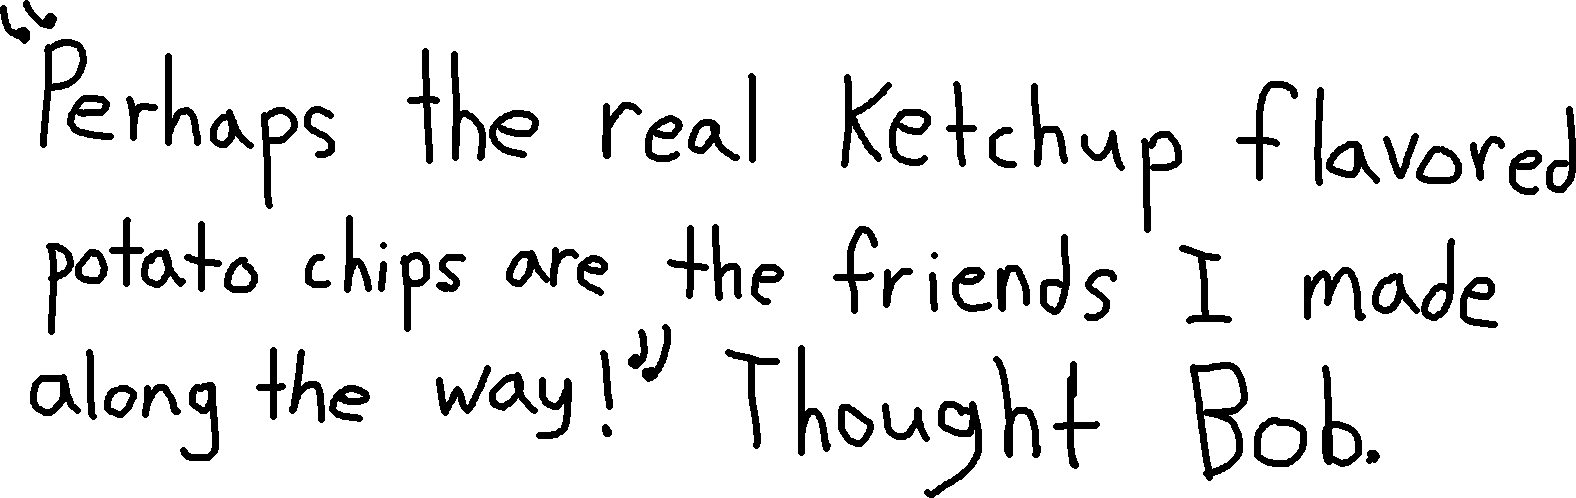 “Perhaps the real Ketchup flavored
potato chips are the friends I made
along the way!” Thought Bob.